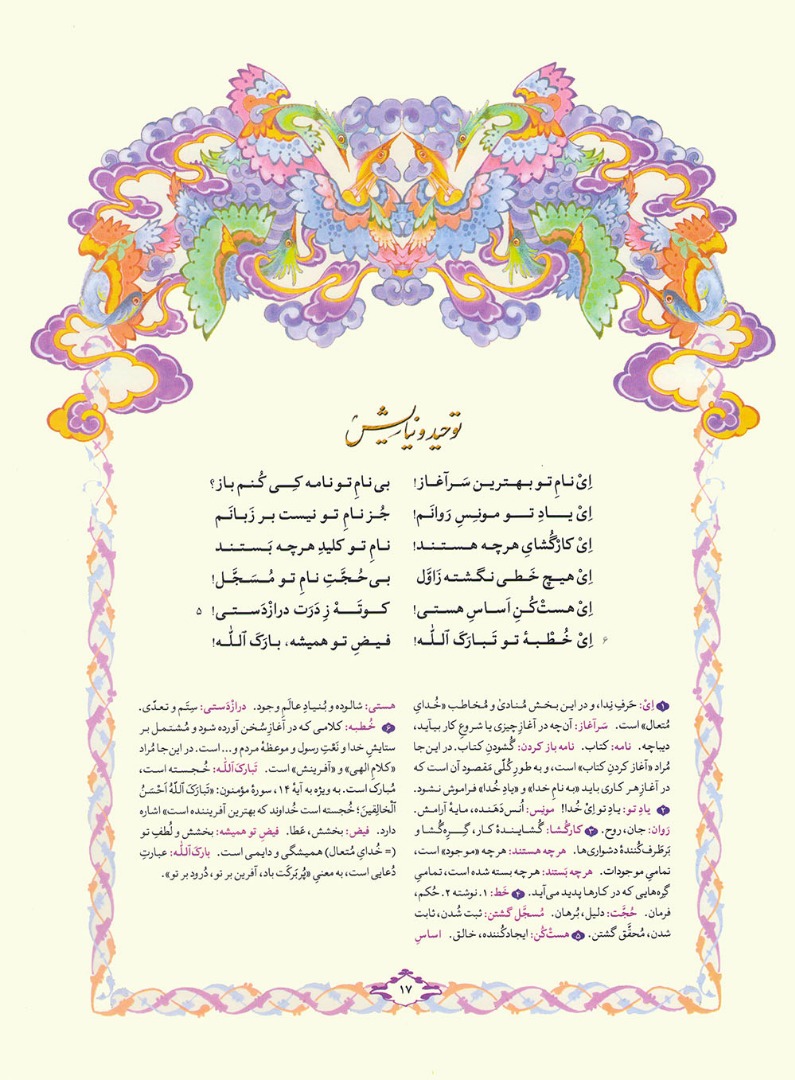 توحید و نیایش
اِیْ نامِ تو بهترین سَرآغاز! بی نامِ تو نامه کِی کُنم باز؟
اِیْ یادِ تو مونسِ رَوانَم! جُز نامِ تو نیست بر زَبانَم
اِیْ کارْگُشایِ هرچه هستند! نامِ تو کلیدِ هرچه بَستند
اِیْ هیچ خَطی نگشته زَاوَّل بی حُجَّتِ نامِ تو مُسَجَّل!
اِیْ هستْ‌کُنِ اَساسِ هستی! کوتَهْ زِ دَرَت درازْدَستی! ۵
۶ اِیْ خُطْبهٔ تو تَبارَکَ ٱللّٰه! فیضِ تو همیشه، بارَکَ ٱللّٰه!
۱ اِیْ: حَرفِ نِدا، و در این بخش مُنادیٰ و مُخاطَب «خُدایِ
مُتعال» است. سَرآغاز: آن‌چه در آغازِ چیزی یا شروعِ کار بیآید،
دیباچه. نامه: کتاب. نامه باز کردن: گُشودنِ کتاب. در این‌جا
مُراد «آغاز کردنِ کتاب» است، و به طورِ کُلّی مَقصود آن است که
در آغازِ هر کاری باید «به نامِ خدا» و «یادِ خُدا» فراموش نشود.
۲ یادِ تو: یادِ تو اِیْ خُدا! مونِس: اُنس‌دَهَنده، مایهٔ آرامش.
رَوان: جان، روح. ۳ کارگُشا: گُشایندهٔ کار، گِرِه‌گُشا و
بَرطَرف‌کُنندهٔ دشواری‌ها. هرچه هستند: هرچه «موجود» است،
تمامیِ موجودات. هرچه بَستند: هرچه بسته شده است، تمامیِ
گِرِه‌هایی که در کارها پدید می‌آید. ۴ خَط: ۱. نوشته ۲. حُکم،
فرمان. حُجَّت: دلیل، بُرهان. مُسجَّل گشتن: ثبت شُدن، ثابت
شدن، مُحقَّق گشتن. ۵ هستْ‌کُن: ایجادکُننده، خالق. اساسِ
هستی: شالوده و بُنیادِ عالَمِ وجود. درازْدَستی: سِتَم و تعدّی.
۶ خُطبه: کلامی که در آغازِ سُخن آورده شود و مُشتمل بر
ستایشِ خدا و نَعْتِ رسول و موعظهٔ مردم و... است. در این‌جا مُراد
«کلامِ الهی» و «آفرینش» است. تَبارَکَ ٱللّٰه: خُجسته است،
مُبارک است. به ویژه به آیهٔ ۱۴، سورهٔ مؤمنون: «تَبارَکَ ٱللّٰهُ اَحْسَنُ
ٱلْخالِقینَ؛ خُجسته است خُداوند که بهترین آفریننده است» اشاره
دارد. فیض: بخشش، عَطا. فیضِ تو همیشه: بخشش و لُطفِ تو
(= خُدایِ مُتعال) همیشگی و دایمی است. بارَکَ ٱللّٰه: عبارتِ
دُعایی است، به معنیِ «پُربَرکت باد، آفرین بر تو، دُرود بر تو».
۱۷